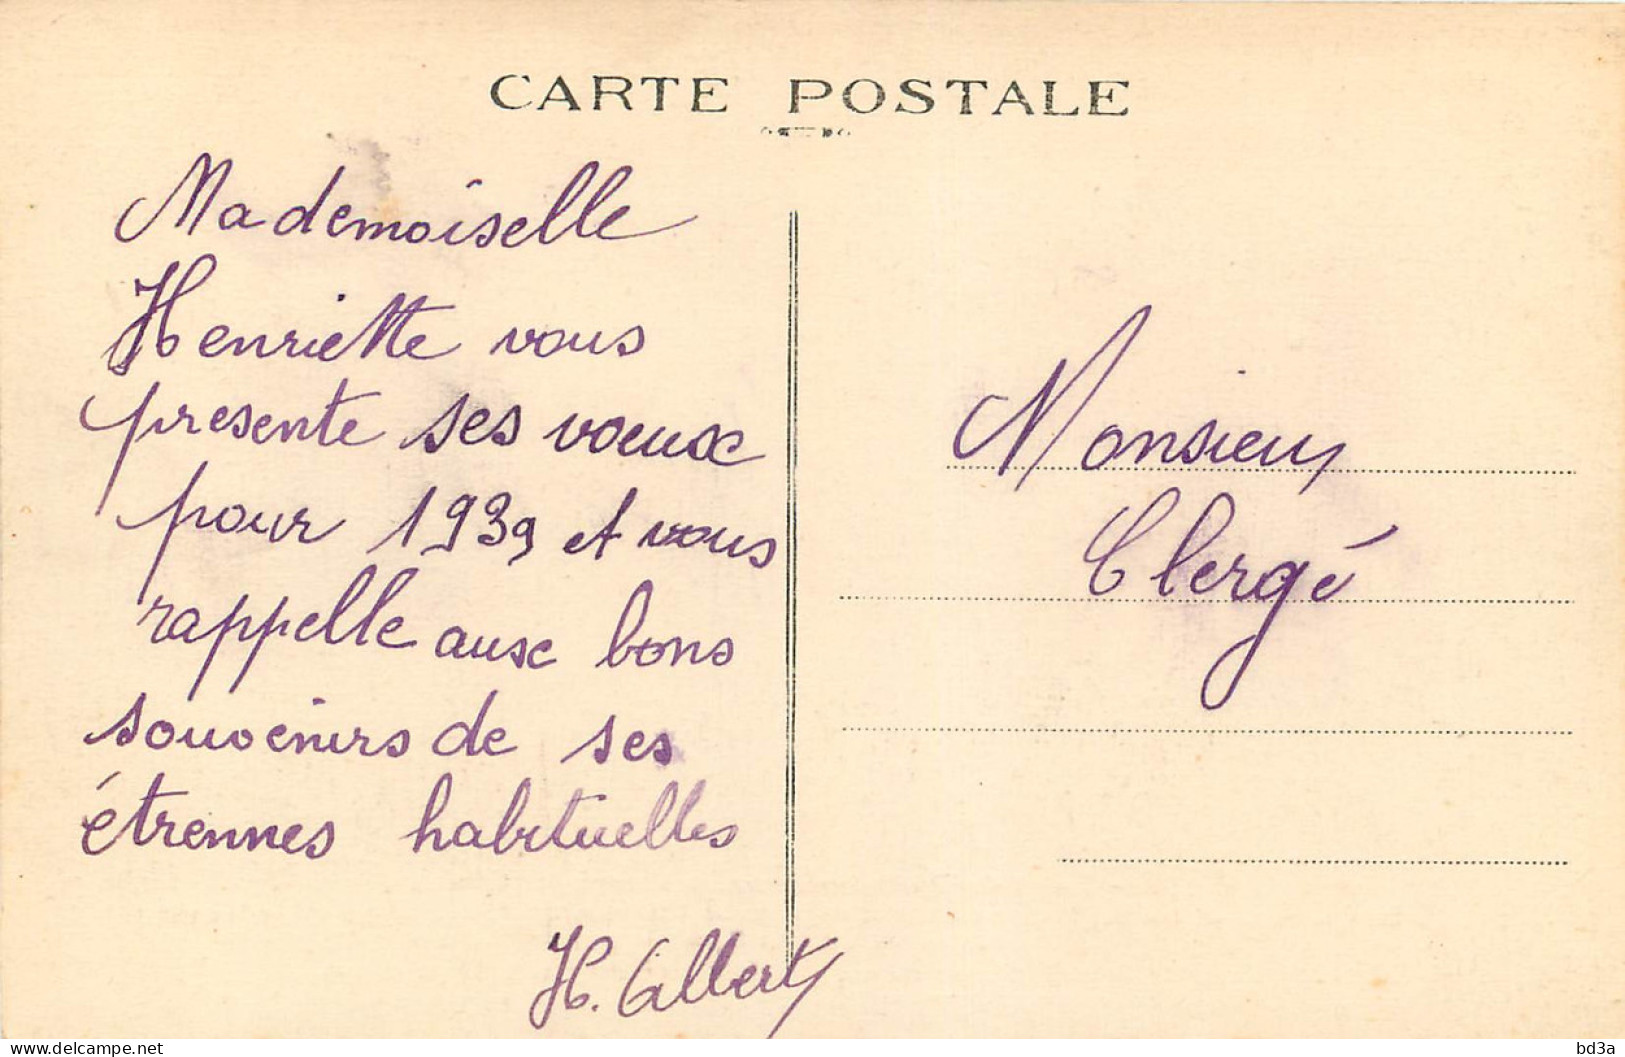 CARTE POSTALE
Mademoiselle
Henriette vous
presente ses vœux
pour 1939 et vous
rappelle aux bons
souvenirs de ses
étrennes habituelles
H. Albert
Monsieur
Clergé
delcampe.net
bd3a